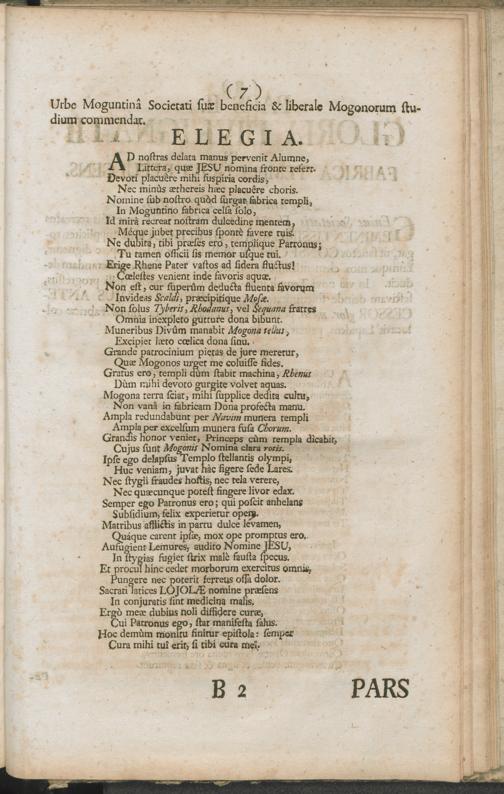 ( 7 )
Urbe Moguntinâ Societati suæ beneficia & liberale Mogonorum stu-
dium commendat.
ELEGIA.
AD nostras delata manus pervenit Alumne,
Littera, quæ JESU nomina fronte refert.
Devoti placuêre mihi suspiria cordis,
Nec minùs æthereis hæc placuêre choris.
Nomine sub nostro quòd surgat fabrica templi,
In Moguntino fabrica celsa solo,
Id mirè recreat nostram dulcedine mentem,
Méque jubet precibus spontè favere tuis.
Ne dubita, tibi præses ero, templique Patronus;
Tu tamen officii sis memor usque tui.
Erige Rhene Pater vastos ad sidera fluctus!
Cœlestes venient inde favoris aquæ.
Non est, cur superûm deducta fluenta favorum
Invideas Scaldi, præcipitique Mosæ.
Non solus Tyberis, Rhodanus, vel Sequana fratres
Omnia inexpleto gutture dona bibunt.
Muneribus Divûm manabit Mogona tellus,
Excipiet læto cœlica dona sinu.
Grande patrocinium pietas de jure meretur,
Quæ Mogonos urget me coluisse fides.
Gratus ero, templi dûm stabit machina, Rhenus
Dûm mihi devoto gurgite volvet aquas.
Mogona terra sciat, mihi supplice dedita cultu,
Non vanâ in fabricam Dona profecta manu.
Ampla redundabunt per Navim munera templi
Ampla per excelsum munera fusa Chorum.
Grandis honor veniet, Princeps cùm templa dicabit,
Cujus sunt Mogonis Nomina clara rotis.
Ipse ego delapsus Templo stellantis olympi,
Huc veniam, juvat hâc figere sede Lares.
Nec stygii fraudes hostis, nec tela verere,
Nec quæcunque potest fingere livor edax.
Semper ego Patronus ero; qui poscit anhelans
Subsidium, felix experietur opem.
Matribus afflictis in partu dulce levamen,
Quáque carent ipsæ, mox ope promptus ero.
Aufugient Lemures, audito Nomine JESU,
In stygias fugiet strix malè fausta specus.
Et procul hinc cedet morborum exercitus omnis,
Pungere nec poterit ferreus ossa dolor.
Sacrati latices LOJOLÆ nomine præsens
In conjuratis sint medicina malis.
Ergò meæ dubius noli diffidere curæ,
Cui Patronus ego, stat manifesta salus.
Hoc demùm monitu finitur epistola: semper
Cura mihi tui erit, si tibi cura meî.
B 2 PARS